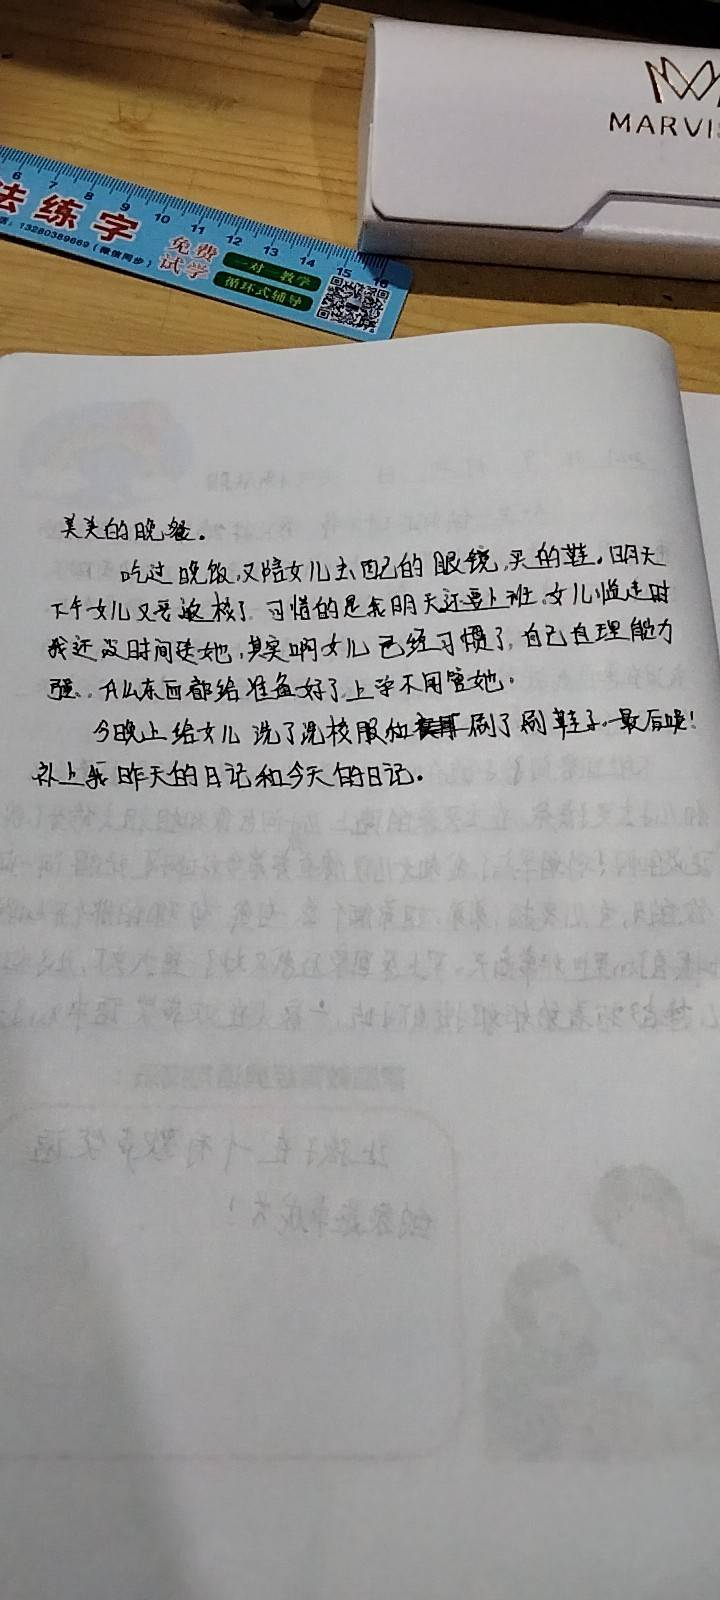 MARVIS
6 7 8 9 10 11 12 13 14 15 16
法练字
13280389669(微信同步)
免费
试学
一对一教学
循环式辅导
美美的晚餐。
吃过晚饭,又陪女儿去自己的眼镜,买的鞋。明天
下午女儿又要返校了,可惜的是我明天还要上班,女儿临走时
我还没时间送她,其实啊女儿已经习惯了,自己自理能力
强,什么东西都给准备好了,上学不用管她。
今晚上给女儿洗了洗校服和刷了刷鞋子。最后呢!
补上我昨天的日记和今天的日记。